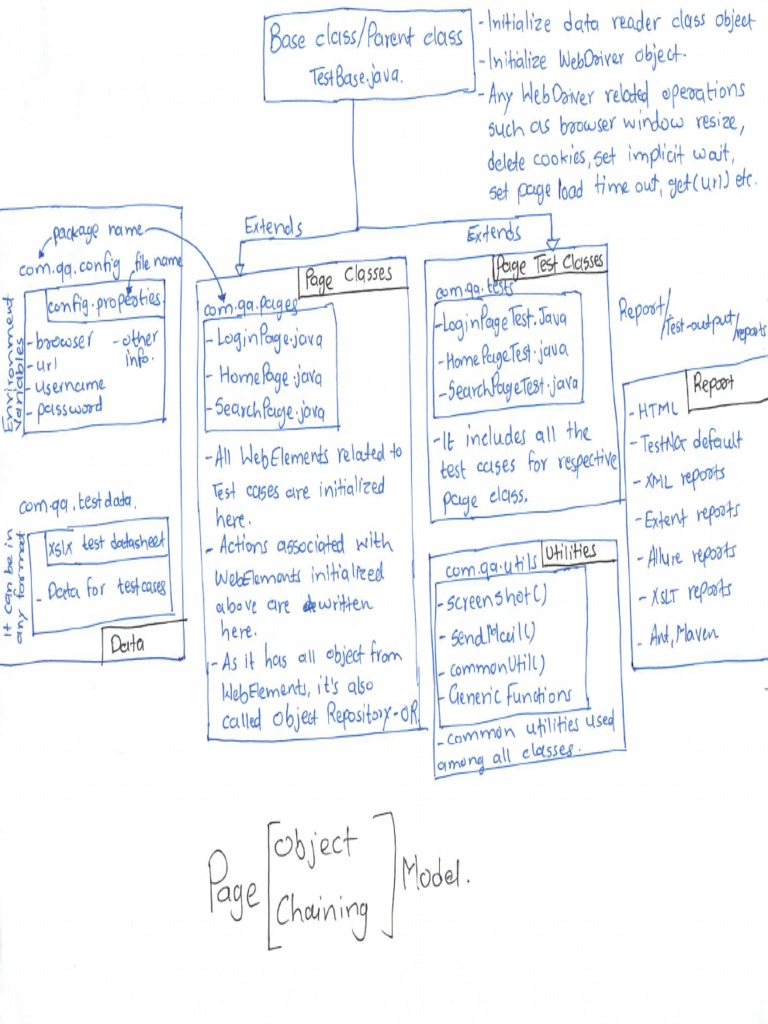 Base class/Parent class
TestBase.java.
- Initialize data reader class object
- Initialize WebDriver object.
- Any WebDriver related operations
such as browser window resize,
delete cookies, set implicit wait,
set page load time out, get(url) etc.
Extends
Extends
package name
com.qa.config
file name
config.properties.
Environment
Variables
- browser
- url
- username
- password
- other
info.
com.qa.testdata.
It can be in
any format
xslx test datasheet
- Data for testcases
Data
Page Classes
com.qa.pages
- LoginPage.java
- HomePage.java
- SearchPage.java
- All WebElements related to
Test cases are initialized
here.
- Actions associated with
WebElements initialized
above are written
here.
- As it has all object from
WebElements, it's also
called Object Repository-OR
Page Test Classes
com.qa.tests
- LoginPageTest.Java
- HomePageTest.java
- SearchPageTest.java
- It includes all the
test cases for respective
page class.
Utilities
com.qa.utils
- screenshot()
- sendMail()
- commonUtil()
- Generic Functions
- common utilities used
among all classes.
Report/
Test-output/
reports
Report
- HTML
- TestNG default
- XML reports
- Extent reports
- Allure reports
- XSLT reports
- Ant, Maven
Page [Object
Chaining] Model.